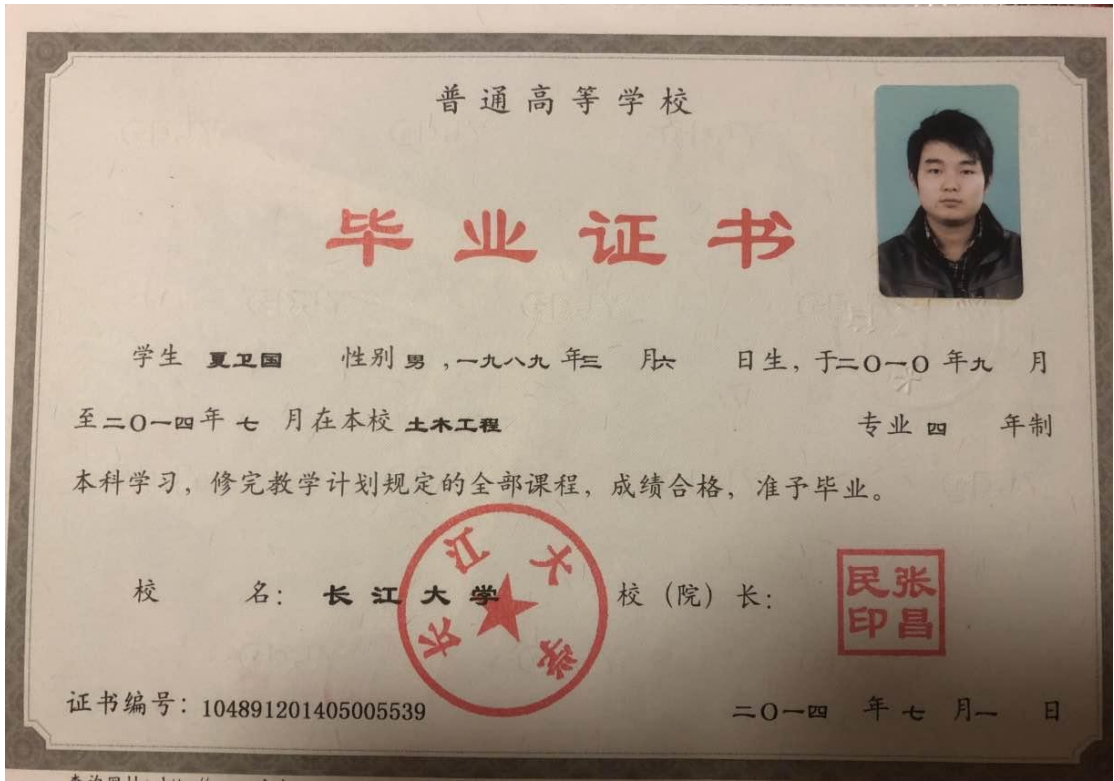 普通高等学校
毕业证书
学生 夏卫国 性别 男 ,一九八九 年三 月六 日生, 于二O一O 年九 月
至二O一四年 七 月在本校 土木工程 专业 四 年制
本科学习, 修完教学计划规定的全部课程, 成绩合格, 准予毕业。
校 名: 长江大学 校 (院) 长:
长江大学
张昌民印
证书编号: 104891201405005539 二O一四 年 七 月一 日